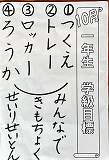 10月
一年生 学級目標
①つくえ
②トレー
③ロッカー
④ろうか
みんなで
きもちよく
せいりせいとん